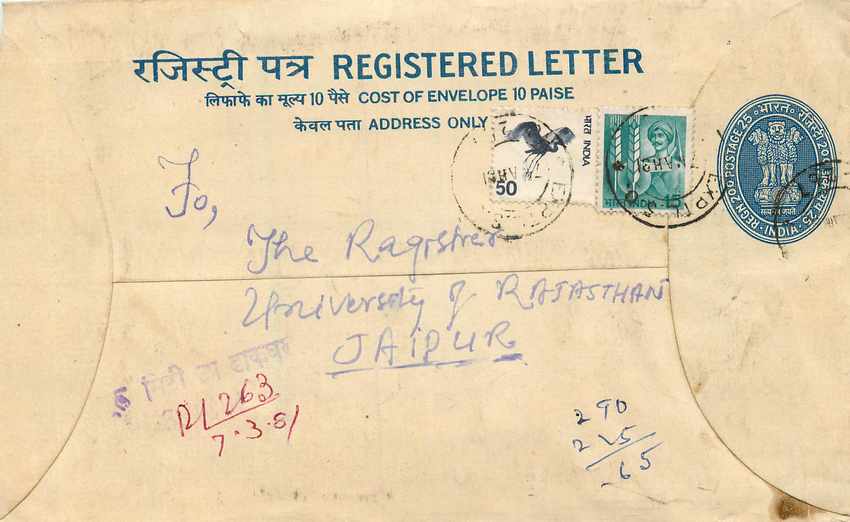 रजिस्ट्री पत्र REGISTERED LETTER
लिफाफे का मूल्य 10 पैसे COST OF ENVELOPE 10 PAISE
केवल पता ADDRESS ONLY
भारत INDIA
50
भारत INDIA 15
भारत रजि. 200 डाक 25
REGN 200 POSTAGE 25
INDIA
सत्यमेव जयते
To,
The Ragistrer
University of RAJASTHAN
JAIPUR
R1263
7.3.81
290
225
.65